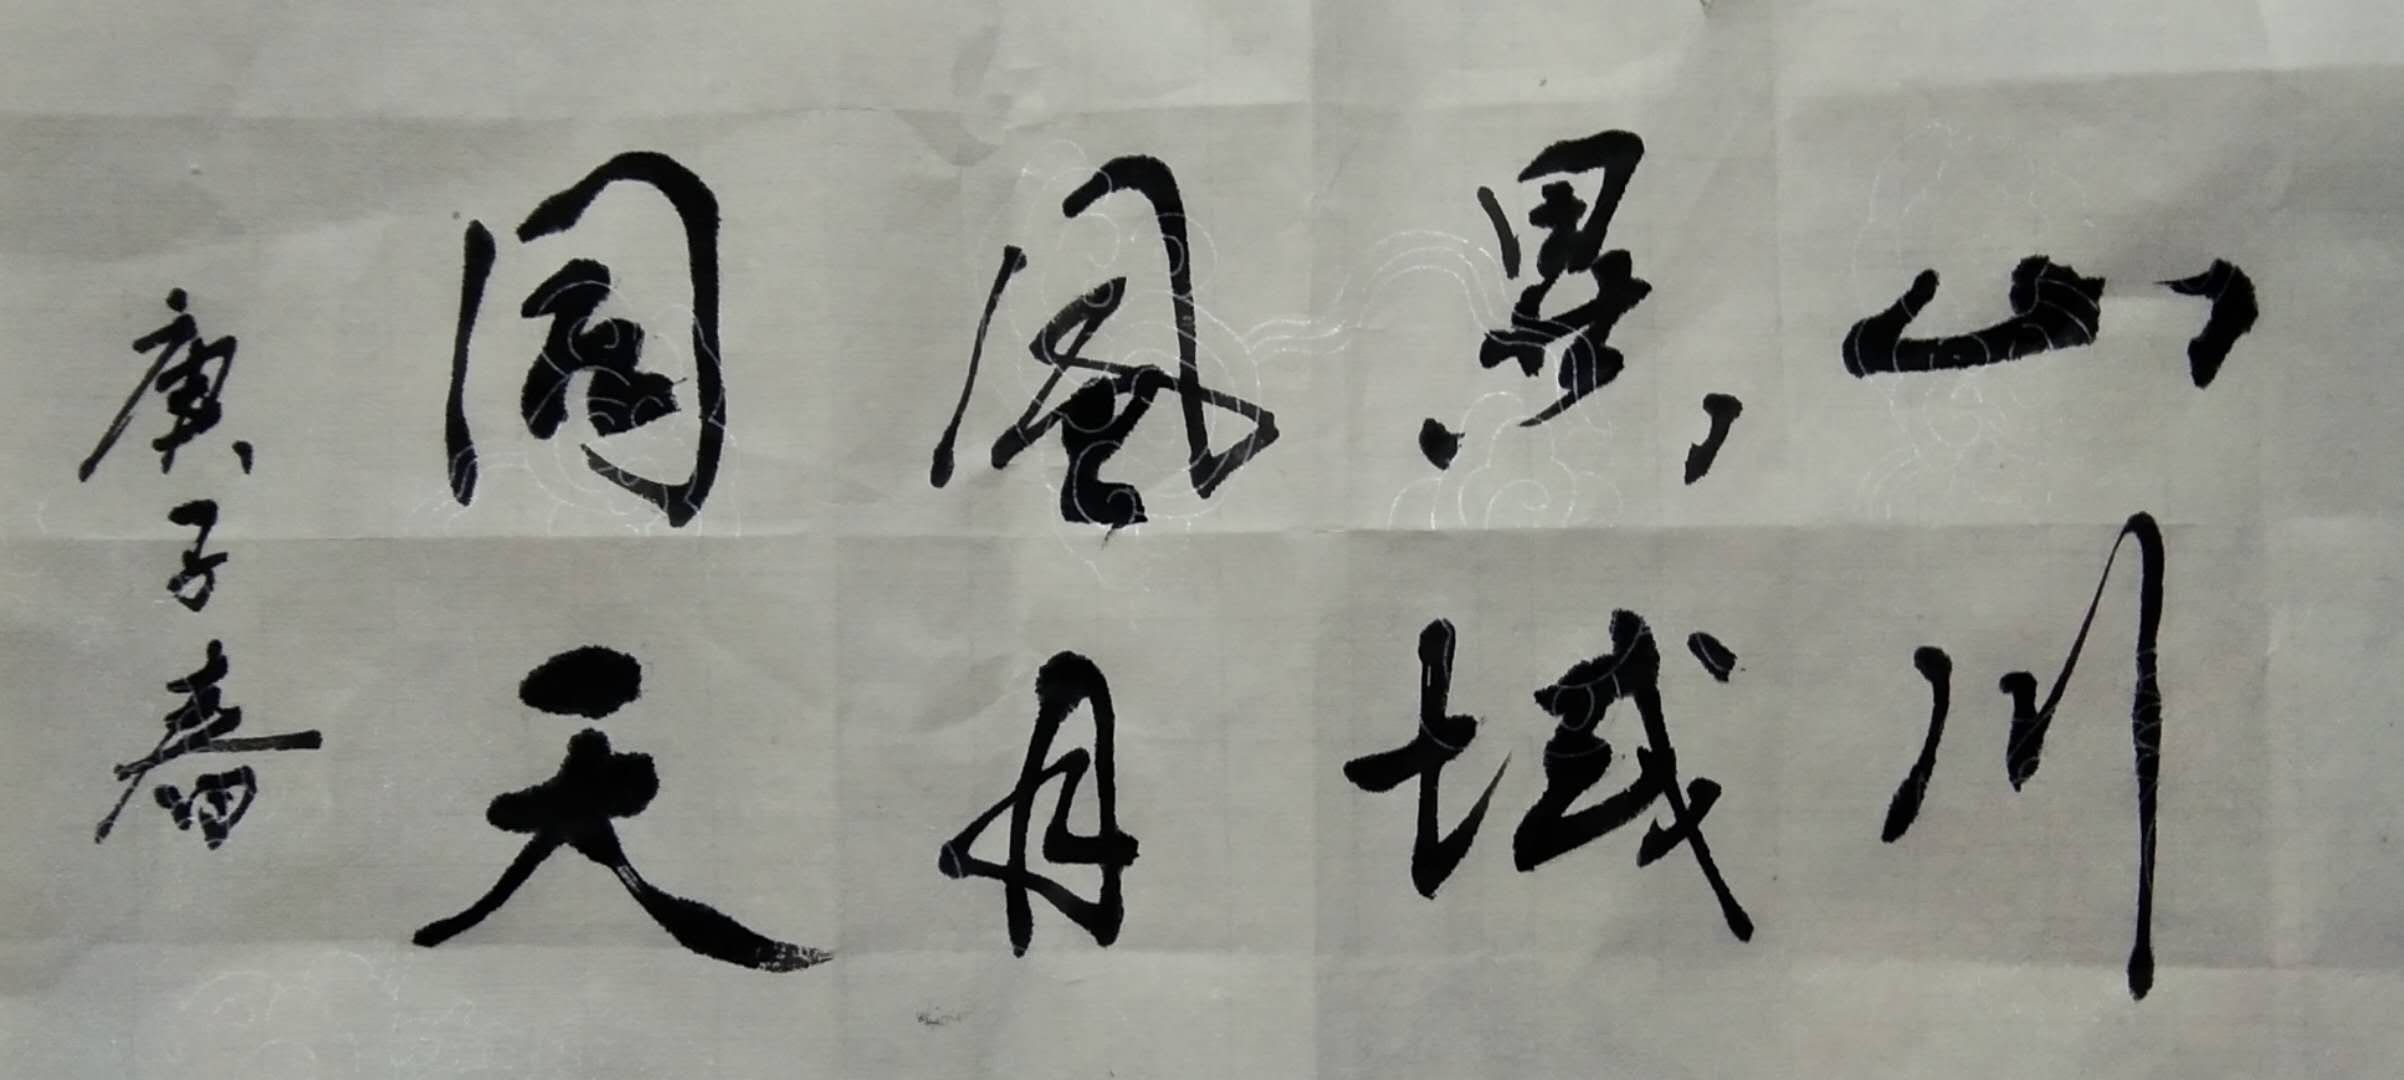 山川
異域
風月
同天
庚子春